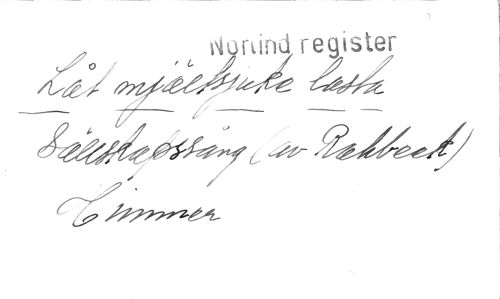 Norlind register
Låt mjältsjuke lasta
Sällskapssång (av Rahbeck)
Timmer